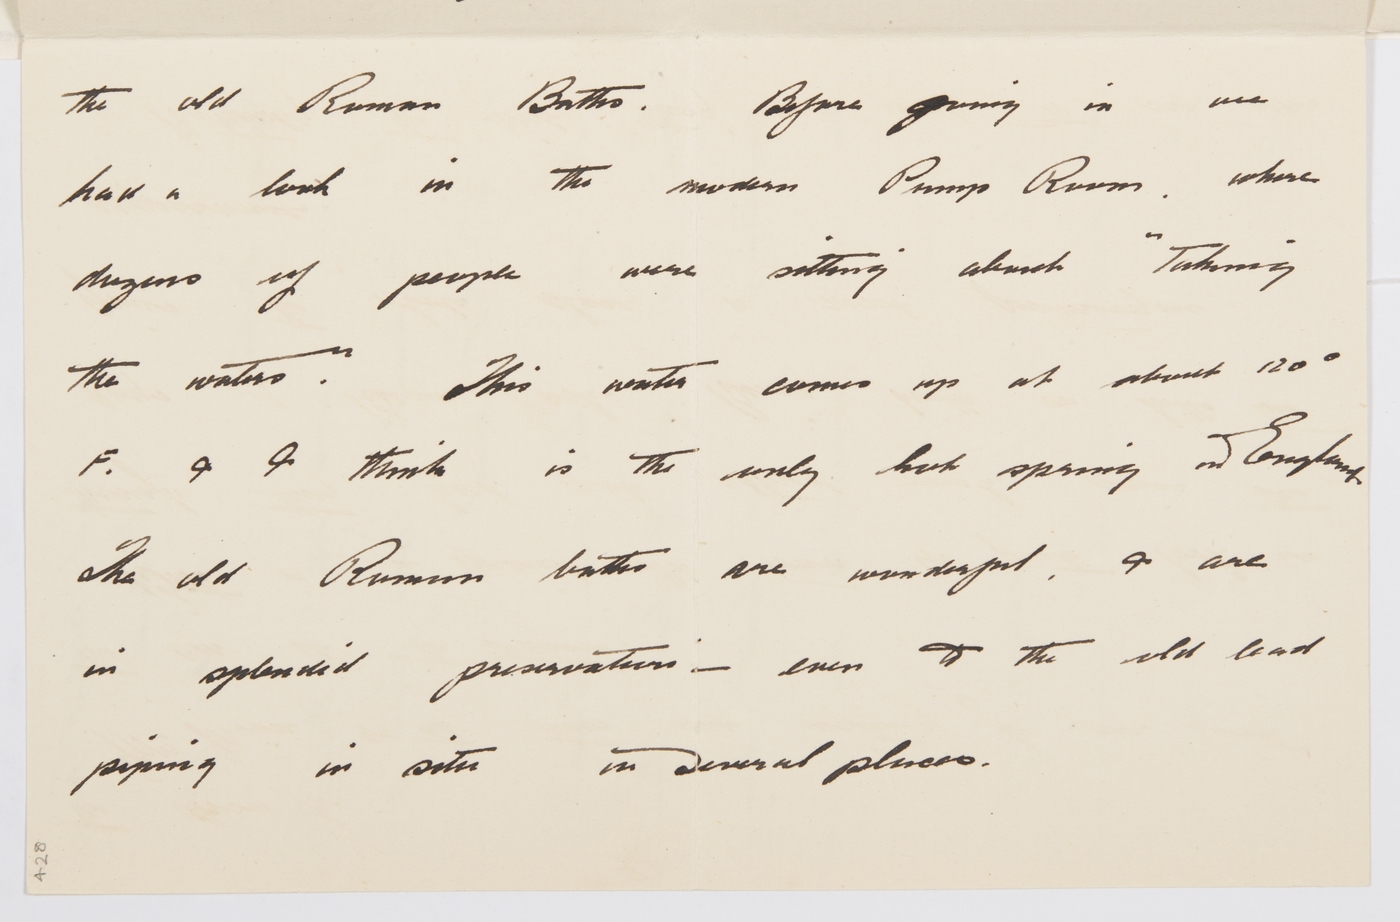 the old Roman Baths. Before going in we
had a look in the modern Pump Room, where
dozens of people were sitting about "Taking
the waters". This water comes up at about 120°
F. & I think is the only hot spring in England
The old Roman baths are wonderful, & are
in splendid preservation — even to the old lead
piping in situ in several places.
428